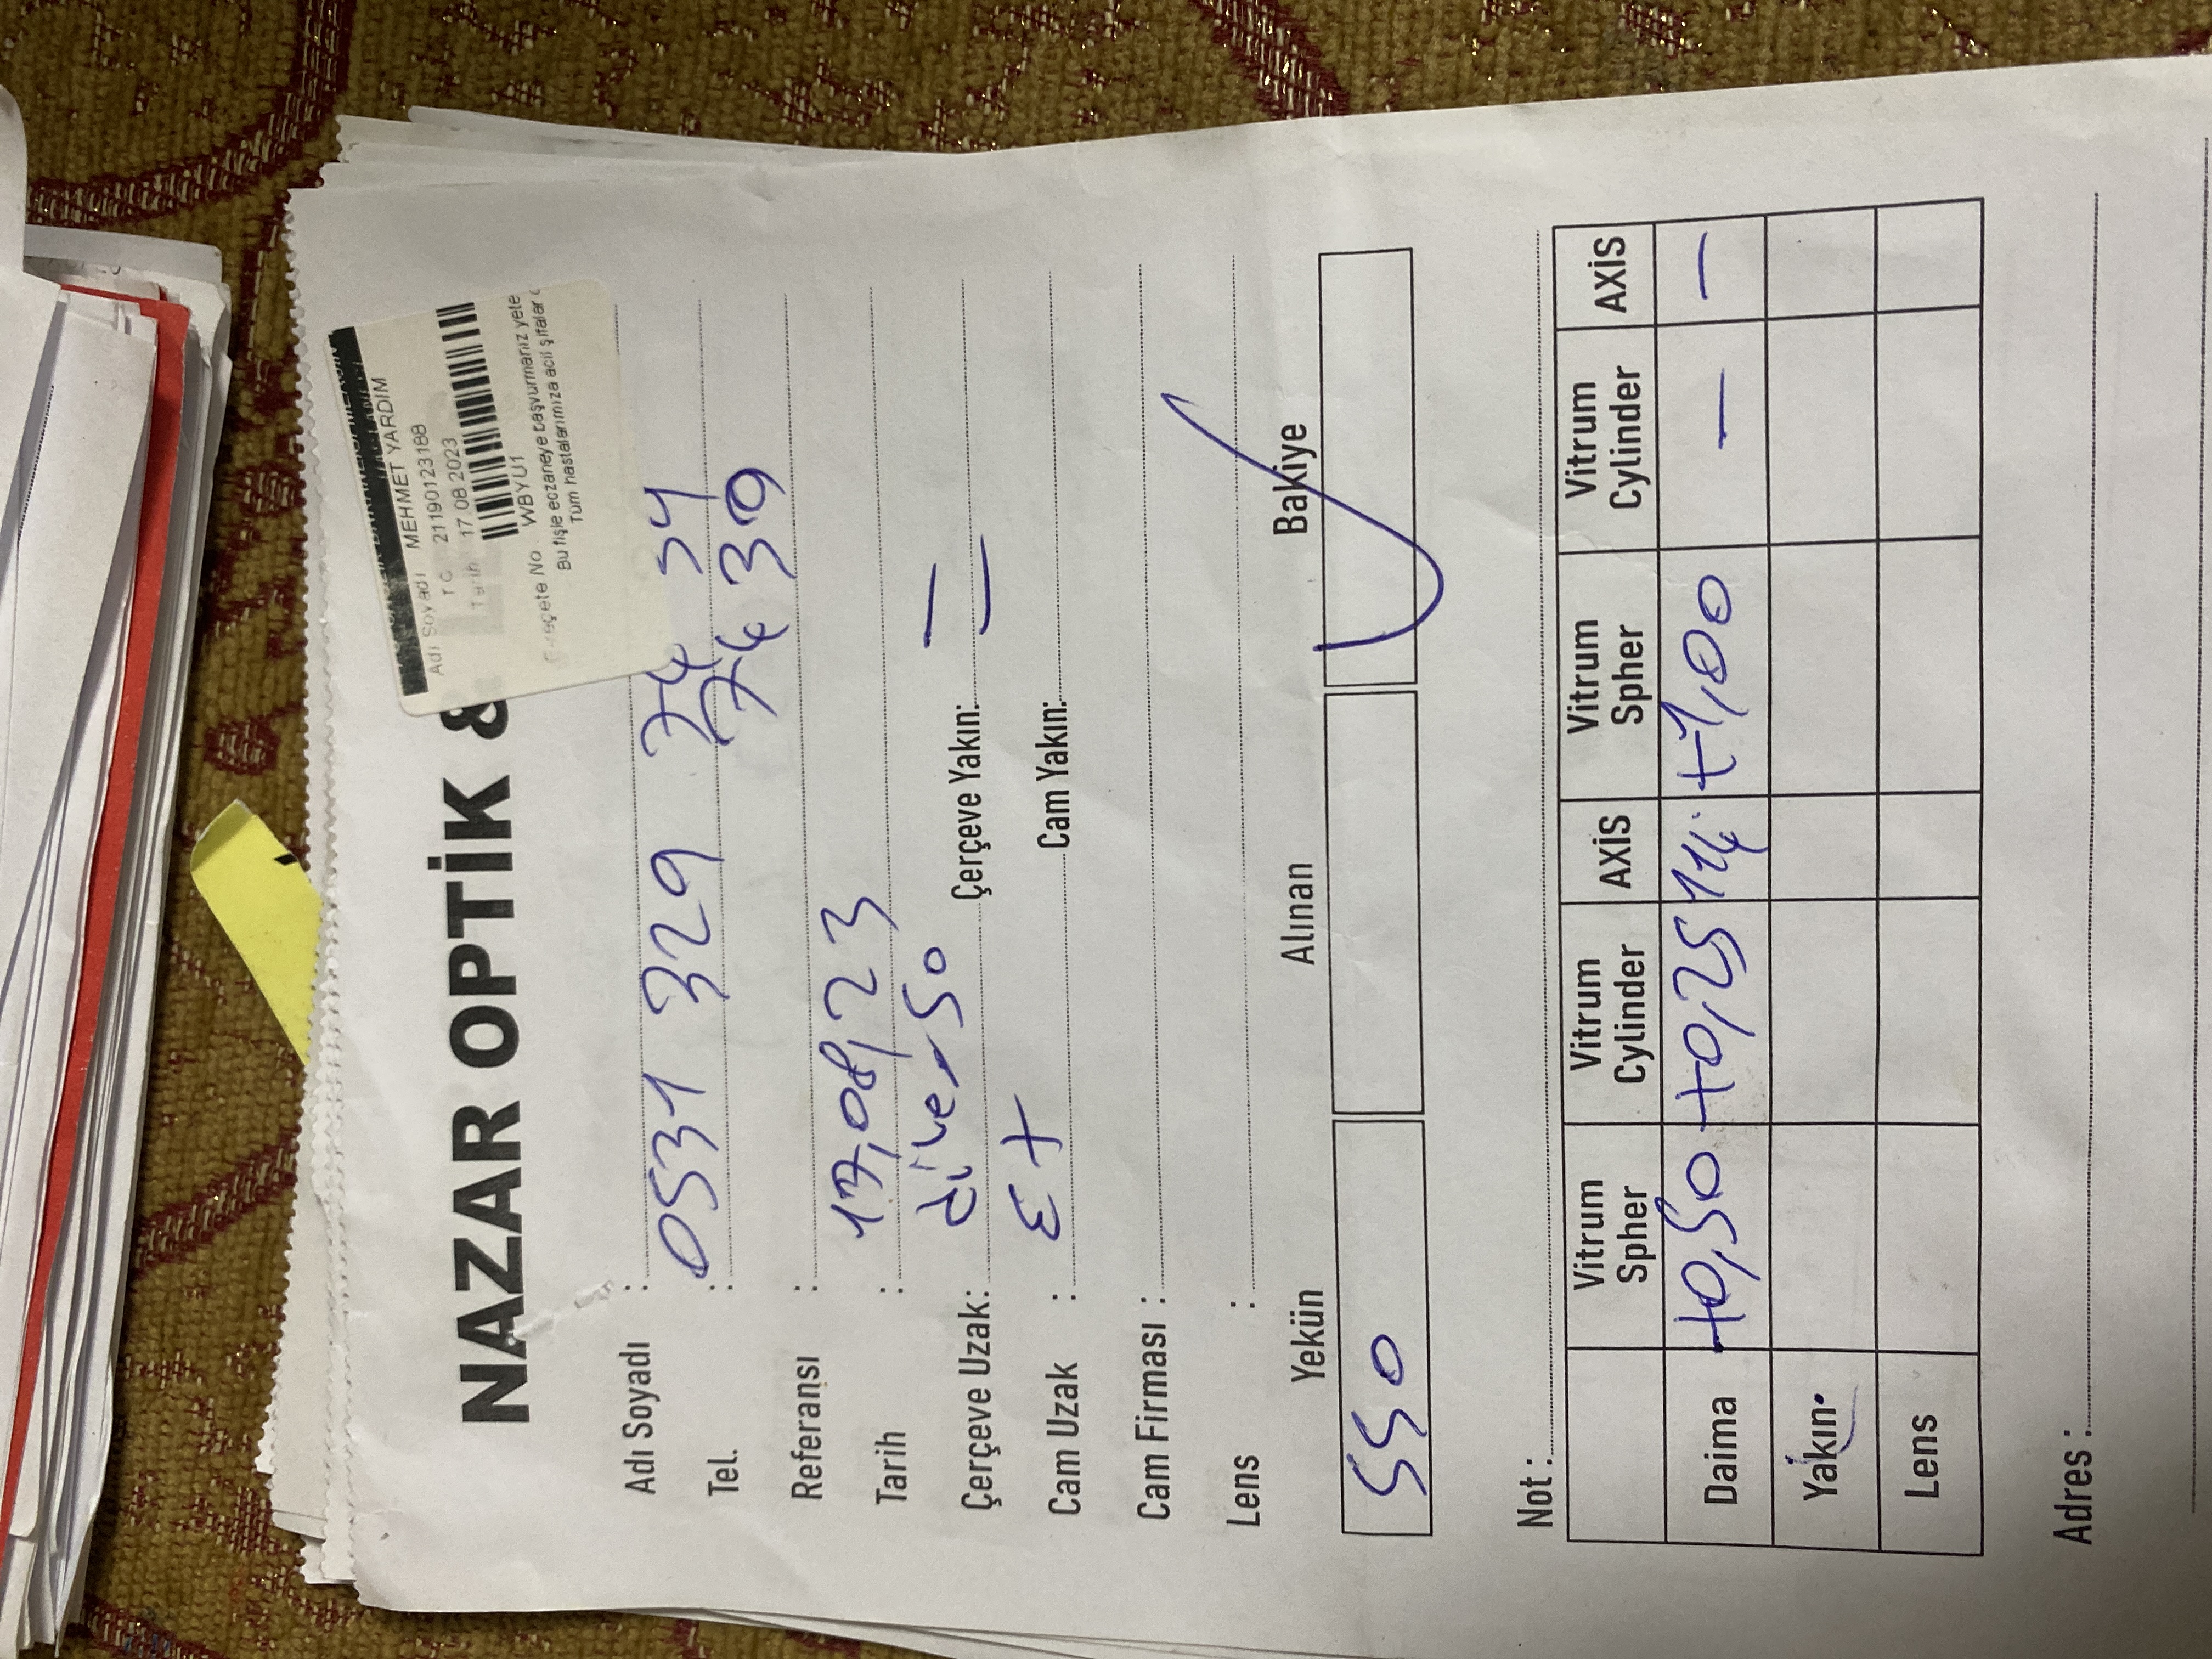 NAZAR OPTİK &
Adı Soyadı MEHMET YARDIM
TC 21190123188
Tarih 17.08.2023
E-reçete No WBYU1
Bu fişle eczaneye başvurmanız yete
Tüm hastalarımıza acil şifalar d
Adı Soyadı :
Tel. : 0531 329 74 54
74 39
Referansı :
Tarih : 17,08,23
Çerçeve Uzak: 50 Çerçeve Yakın: —
Cam Uzak : Ex Cam Yakın: —
Cam Firması :
Lens :
Yekün Alınan Bakiye
550
Not :
Vitrum Spher Vitrum Cylinder AXİS Vitrum Spher Vitrum Cylinder AXİS
Daima +0,50 +0,25 114 +1,00 — —
Yakın
Lens
Adres :